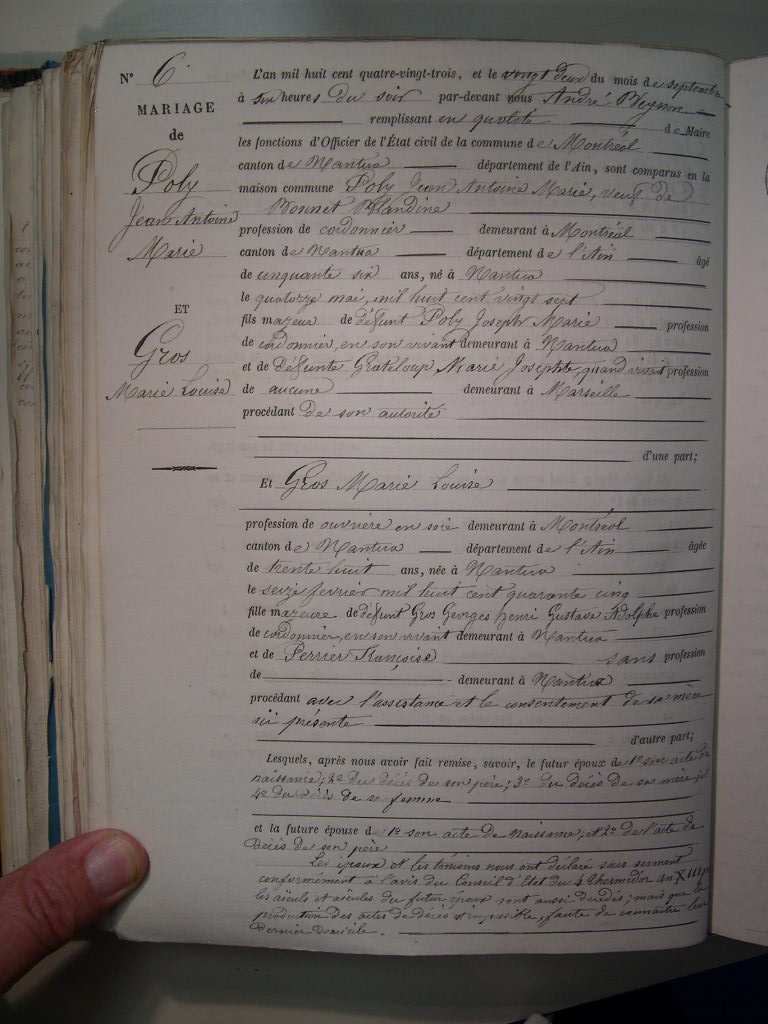 N° 6.
MARIAGE
de
Poly
Jean Antoine
Marie
ET
Gros
Marie Louise
L'an mil huit cent quatre-vingt-trois, et le vingt deux du mois de septembre
à six heures du soir par-devant nous André Peysson
remplissant en qualité de Maire
les fonctions d'Officier de l'État civil de la commune de Montréal
canton de Nantua département de l'Ain, sont comparus en la
maison commune Poly Jean Antoine Marie, veuf de
Bonnet Blandine
profession de cordonnier demeurant à Montréal
canton de Nantua département de l'Ain âgé
de cinquante six ans, né à Nantua
le quatorze mai, mil huit cent vingt sept
fils majeur de défunt Poly Joseph Marie profession
de cordonnier, en son vivant demeurant à Nantua
et de défunte Grateloup Marie Josephte, quand vivait profession
de aucune demeurant à Marseille
procédant de son autorité
d'une part;
Et Gros Marie Louise
profession de ouvrière en soie demeurant à Montréal
canton de Nantua département de l'Ain âgée
de trente huit ans, née à Nantua
le seize février mil huit cent quarante cinq
fille majeure de défunt Gros Georges henri Gustave Adolphe profession
de cordonnier, en son vivant demeurant à Nantua
et de Perrier Françoise sans profession
de demeurant à Nantua
procédant avec l'assistance et le consentement de sa mère
ici présente
d'autre part;
Lesquels, après nous avoir fait remise, savoir, le futur époux de 1° son acte de
naissance; 2° du décès de son père; 3° du décès de sa mère, et
4° du décès de sa femme
et la future épouse de 1° son acte de naissance; et 2° de l'acte de
décès de son père
Les époux et les témoins nous ont déclaré sous serment
conformément à l'avis du Conseil d'Etat du 4 thermidor an XIII que
les aïeuls et aïeules du futur époux sont aussi décédés; mais que la
production des actes de décès est impossible, faute de connaître leur
dernier domicile.